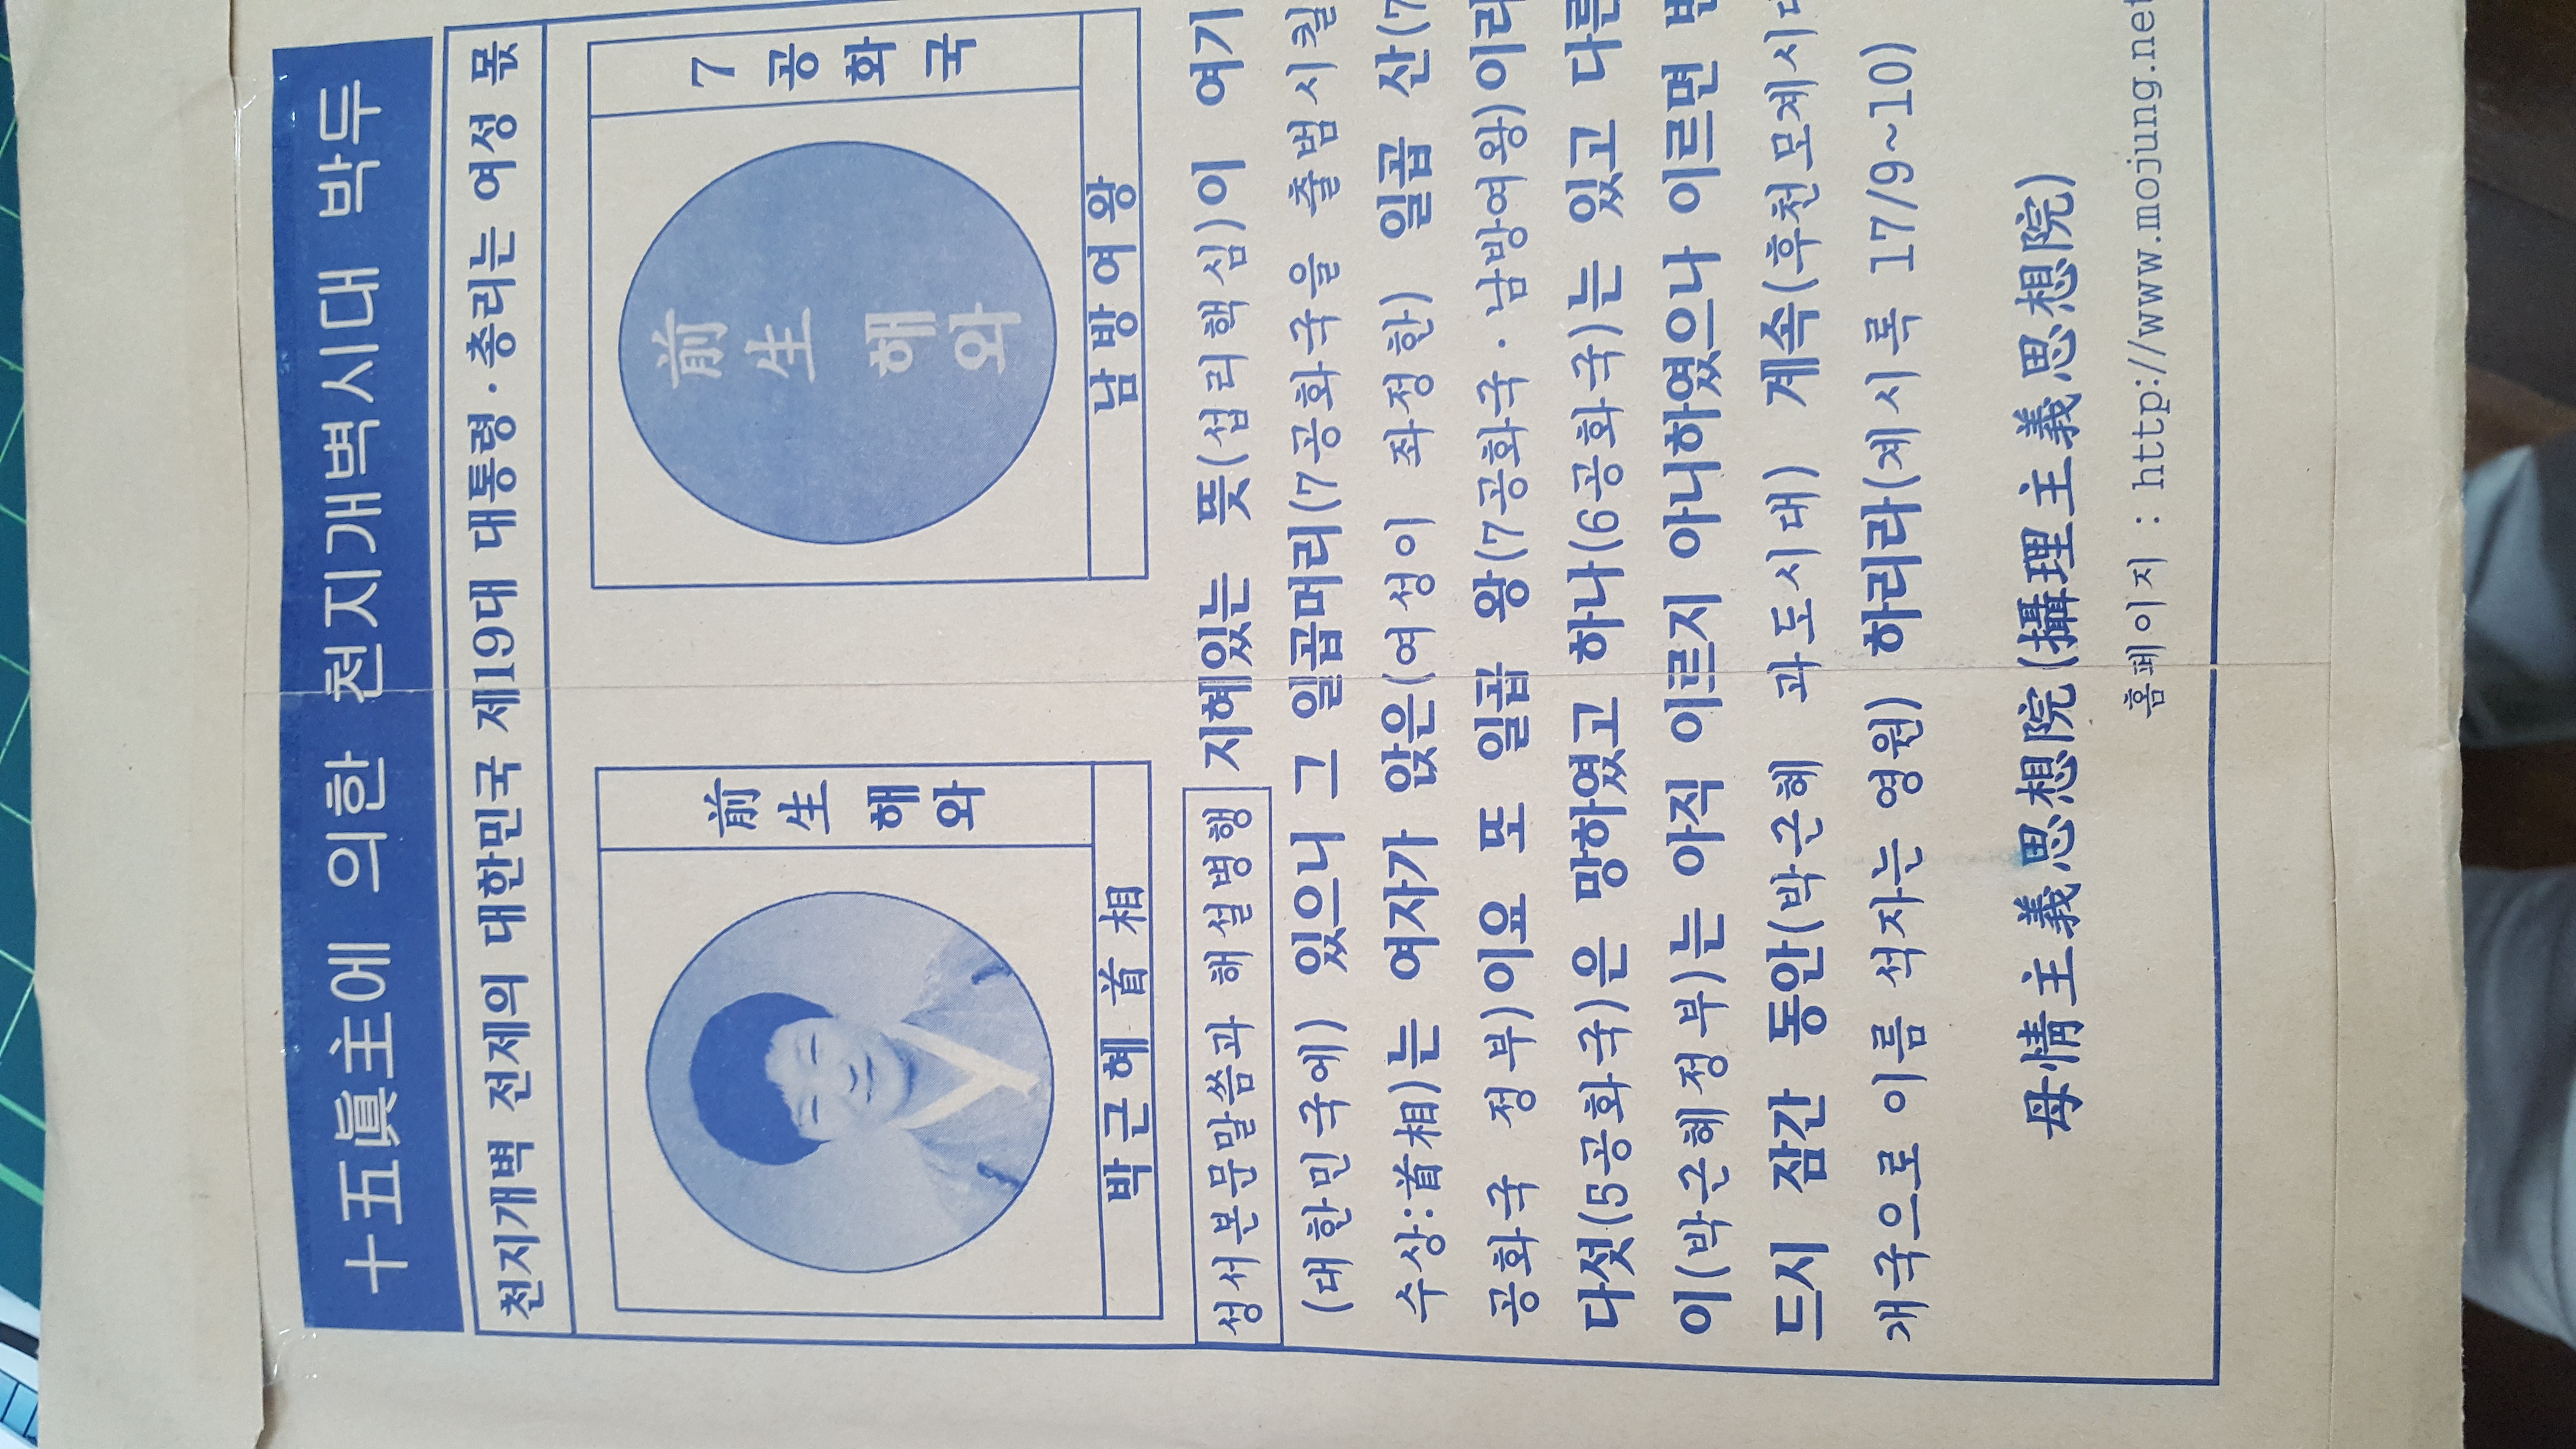 十五眞主에 의한 천지개벽시대 박두
천지개벽 전제의 대한민국 제19대 대통령·총리는 여성 몫
前生 해와
박근혜 首相
7공화국
前生 해와
남방여왕
성서본문말씀과 해설병행 지혜있는 뜻(섭리핵심)이 여기
(대한민국에) 있으니 그 일곱머리(7공화국을 출범시킬
수상:首相)는 여자가 앉은(여성이 좌정한) 일곱 산(7
공화국 정부)이요 또 일곱 왕(7공화국·남방여왕)이라
다섯(5공화국)은 망하였고 하나(6공화국)는 있고 다른
이(박근혜정부)는 아직 이르지 아니하였으나 이르면 반
드시 잠간 동안(박근혜 과도시대) 계속(후천모계시대
개국으로 이름 석자는 영원) 하리라(계시록 17/9~10)
母情主義思想院(攝理主義思想院)
홈페이지 : http://www.mojung.net